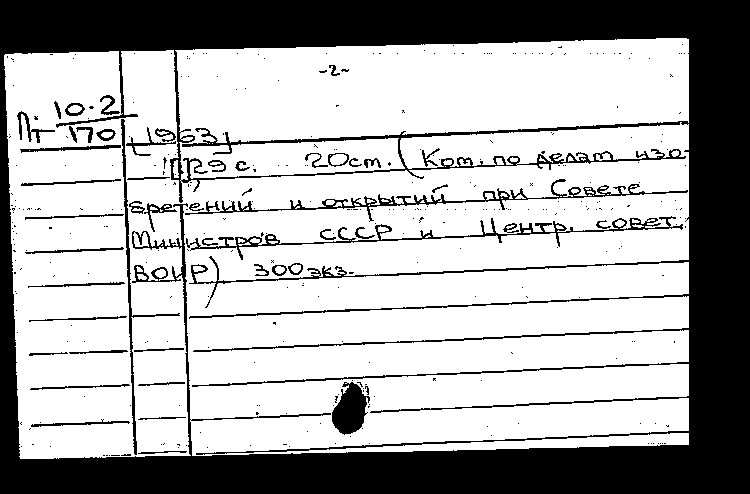 -2-
Пт 10.2
170
[1963]
29 с. 20см. (Ком. по делам изо-
бретений и открытий при Совете
Министров СССР и Центр. совет.
ВОИР) 300 экз.